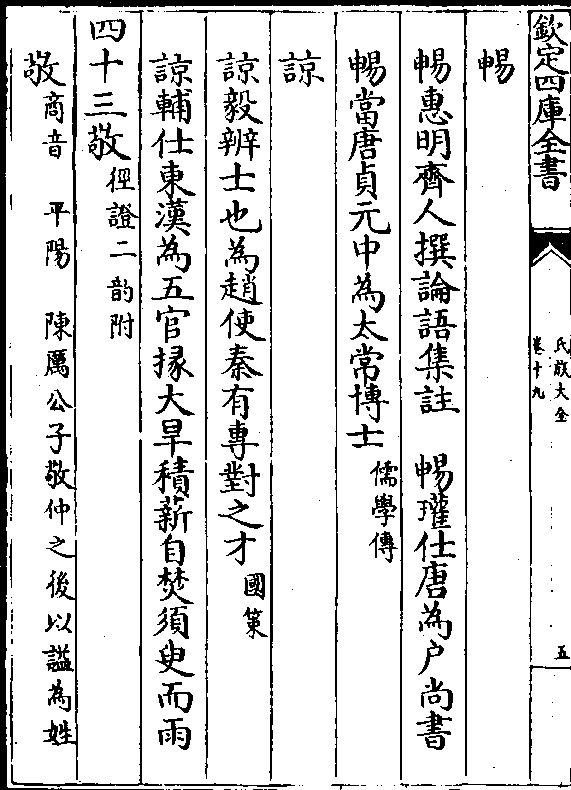 欽定四庫全書
氏族大全
卷十九
五
暢
暢惠明齊人撰論語集註　暢璀仕唐為户尚書
暢當唐貞元中為太常博士儒學傳
諒
諒毅辨士也為趙使秦有專對之才國策
諒輔仕東漢為五官掾大旱積薪自焚須臾而雨
四十三敬徑證二韵附
敬商音　平陽　陳厲公子敬仲之後以諡為姓